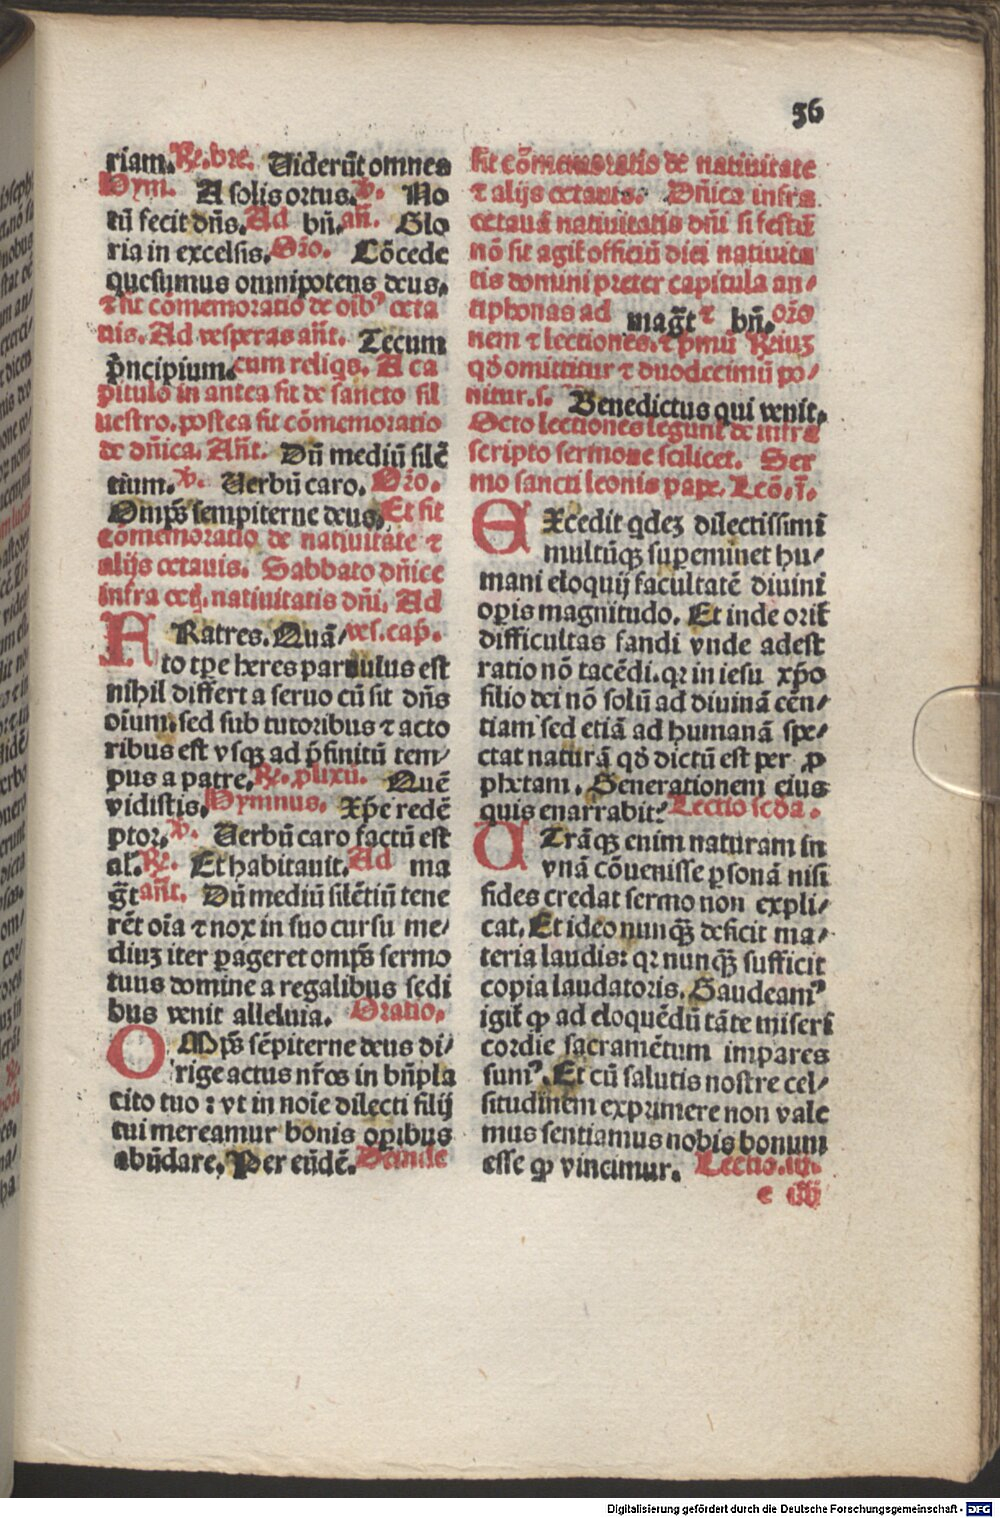 36
riam. R̃. bre. Viderũt omnes
Hym. A solis ortus. v̾. No
tũ fecit dñs. Ad bñ. añ. Glo
ria in excelsis. Orõ. Cõcede
quesumus omnipotens deus.
⁊ fit cõmemoratio de oib⁹ octa
uis. Ad vesperas añt. Tecum
p̃ncipium. cum reliqs. A ca
pitulo in antea fit de sancto sil
uestro. postea fit cõmemoratio
de dñica. Añt. Dũ mediũ silẽ
tium. v̾. Verbũ caro. Orõ.
Omp̃s sempiterne deus. Et fit
cõmemoratio de natiuitate ⁊
alijs octauis. Sabbato dñice
infra octã. natiuitatis dñi. Ad
FRatres. Quã/ ves. cap̃.
to tp̃e heres paruulus est
nihil differt a seruo cũ sit dñs
oĩum. sed sub tutoribus ⁊ acto
ribus est vsq̃ ad p̃finitũ tem/
pus a patre. R̃. plixũ. Quẽ
vidistis. Hymnus. Xp̃e redẽ
ptor. v̾. Verbũ caro factũ est
al'. R̃. Et habitauit. Ad ma
g̃t añt. Dũ mediũ silẽtiũ tene
rẽt oĩa ⁊ nox in suo cursu me/
diuʒ iter ꝑageret omp̃s sermo
tuus domine a regalibus sedi
bus venit alleluia. Oratio.
OMp̃s sẽpiterne deus di/
rige actus nr̃os in bñpla
cito tuo : vt in noĩe dilecti filij
tui mereamur bonis oꝑibus
abũdare. Per eũdẽ. Deinde
fit cõmemoratio de natiuitate
⁊ alijs octauis. Dñica infra
octauã natiuitatis dñi si festũ
nõ sit agit̃ officiũ diei natiuita
tis domini preter capitula an/
tiphonas ad mag̃t ⁊ bñ. orõ
nem ⁊ lectiones. ⁊ p̃mũ Reiuʒ
qd̃ omittitur ⁊ duodecimũ po/
nitur. s. Benedictus qui venit.
Octo lectiones legunt̃ de infra
scripto sermone scilicet. Ser
mo sancti leonis pape. Lcõ. ĩ.
EXcedit qdeʒ dilectissimĩ
multũq̃ suꝑeminet hu/
mani eloquij facultatẽ diuini
oꝑis magnitudo. Et inde orit̃
difficultas fandi vnde adest
ratio nõ tacẽdi. qꝛ in iesu xp̃o
filio dei nõ solũ ad diuinã eẽn/
tiam sed etiã ad humanã spe/
ctat naturã qd̃ dictũ est per ꝓ
phetam. Generationem eius
quis enarrabit? Lectio scd̃a.
UTrãq̃ enim naturam in
vnã cõuenisse ꝑsonã nisi
fides credat sermo non expli/
cat. Et ideo nunq̃ꝫ deficit ma/
teria laudis: qꝛ nunq̃ꝫ sufficit
copia laudatoris. Gaudeam⁹
igit̃ ꝙ ad eloquẽdũ tãte miseri
cordie sacramẽtum impares
sum⁹. Et cũ salutis nostre cel/
situdinem exprimere non vale
mus sentiamus nobis bonum
esse ꝙ vincimur. Lectio. iij.
e iiij
Digitalisierung gefördert durch die Deutsche Forschungsgemeinschaft - DFG